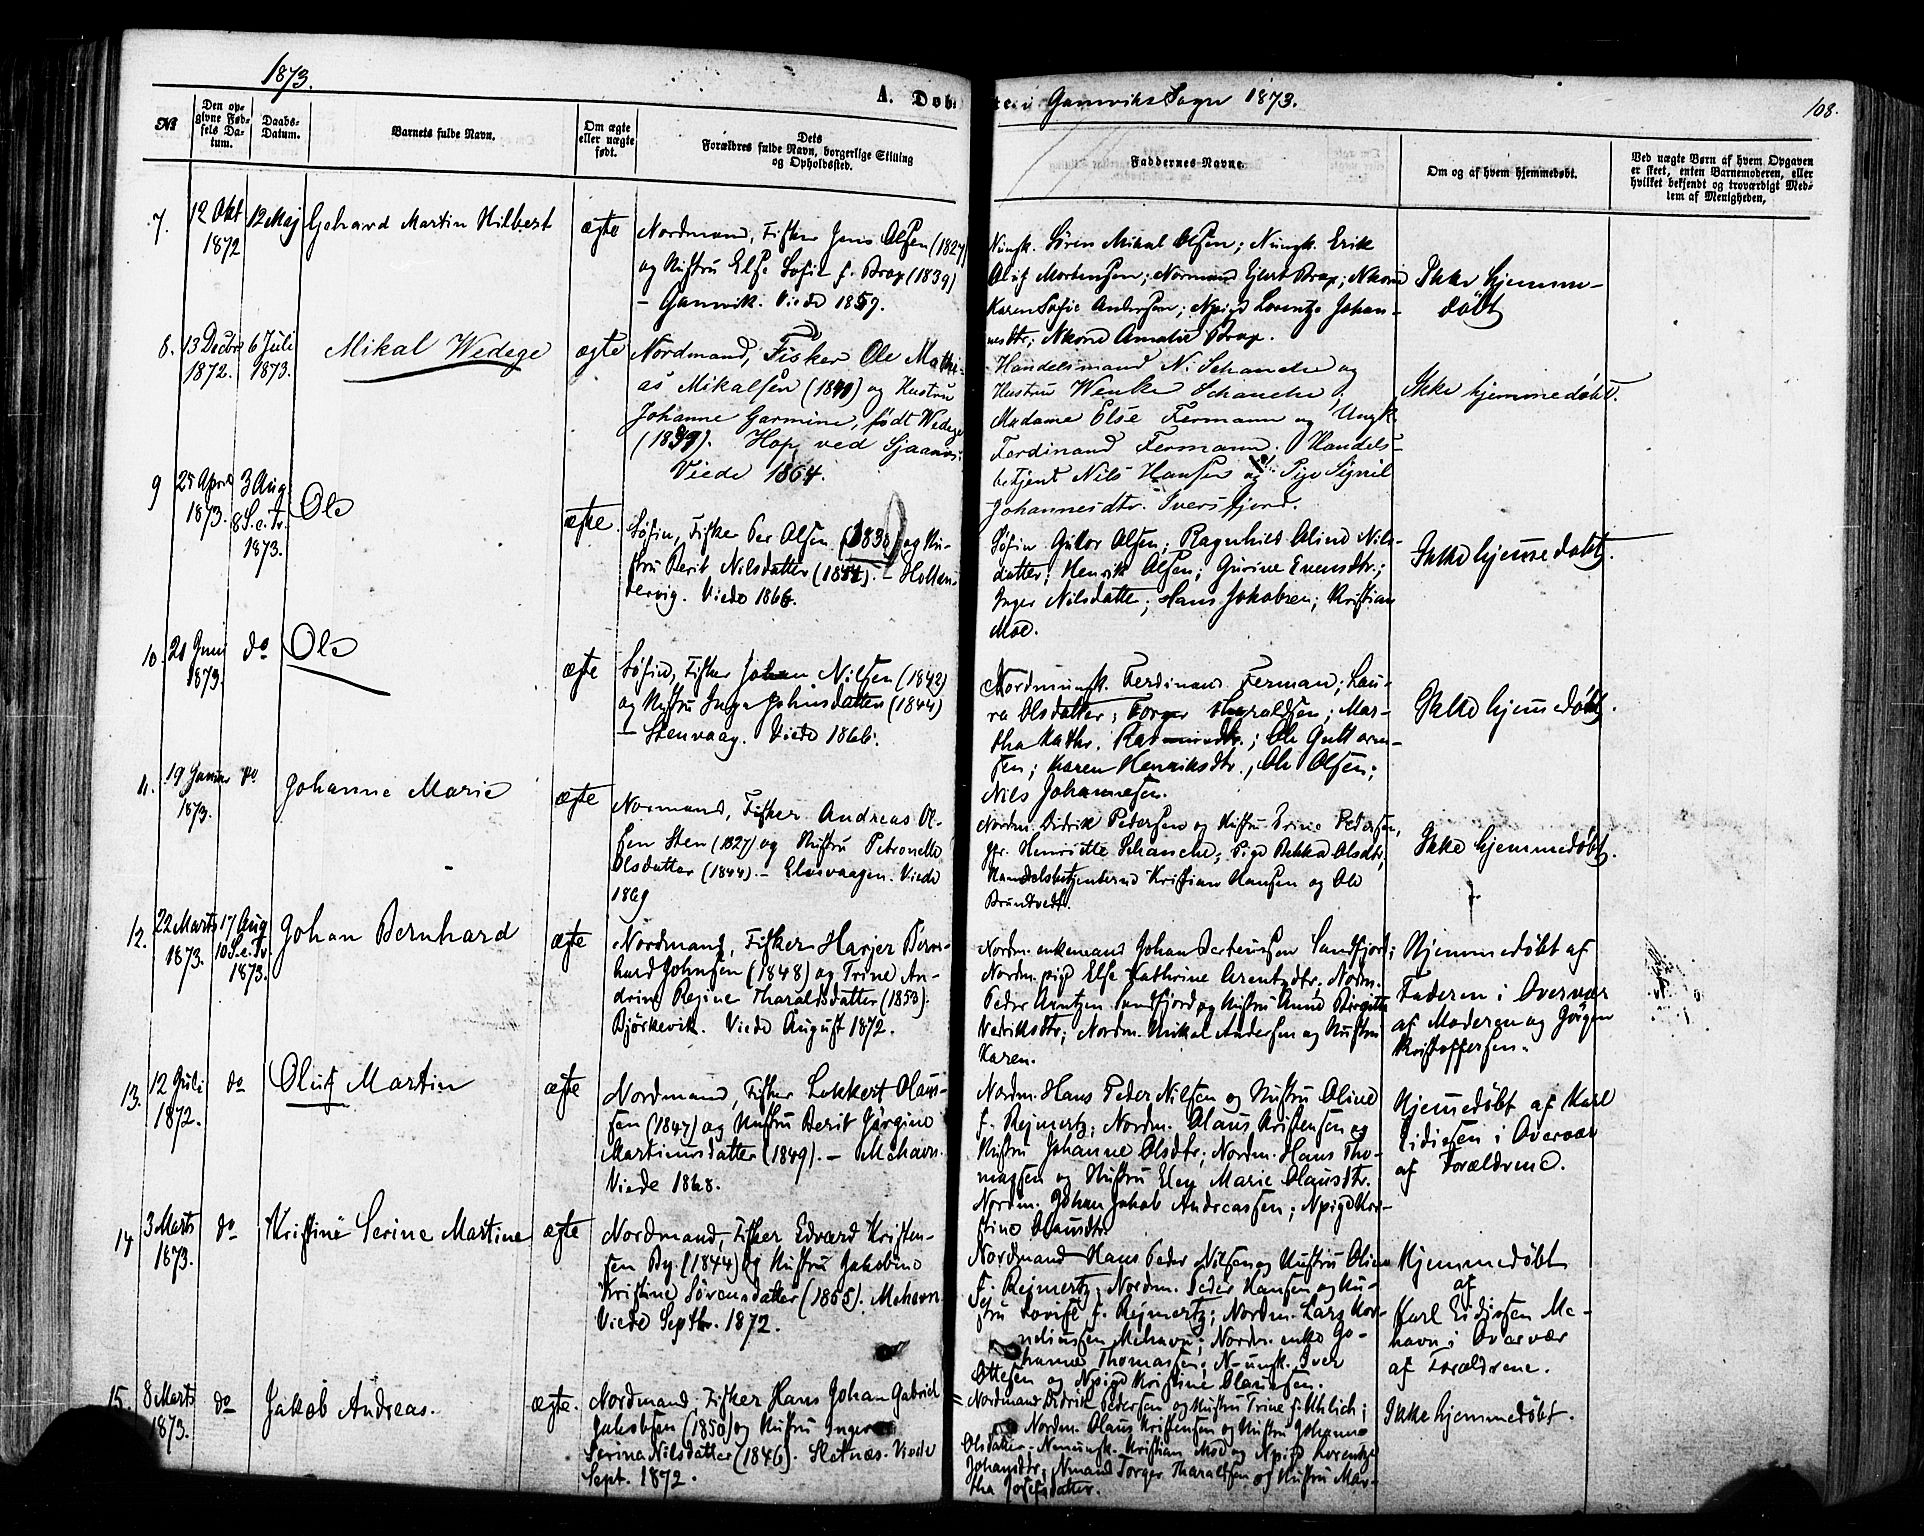 1873.
A. Døb-
te i Gamviks Sogn 1873.
108.
No
Den op-
givne Fød-
sels Da-
tum.
Daabs-
Datum.
Barnets fulde Navn.
Om ægte
eller uægte
født.
Dets
Forældres fulde Navn, borgerlige Stilling
og Opholdssted.
Faddernes Navne.
Om og af hvem hjemmedøbt.
Ved uægte Børn af hvem Opgaven
er skeet, enten Barnemoderen, eller
hvilket bekjendt og troværdigt Med-
lem af Menigheden.
7.
12 Okt
1872
12 Maj
Gehard Martin Hilbert
ægte
Nordmand, Fisker Jens Olsen (1827)
og Hustru Else Sofie f. Brox (1839)
– Gamvik. Viede 1859.
Nungk. Søren Mikal Olsen; Nungk. Erik
Oluf Mortensen; Normand Ejlert Brox; Nkone
Karen Sofie Andersen; Npige Lorentze Johan-
nesdtr; Nkone Amalie Brox.
Ikke hjemme-
døbt
8.
13 Decbr
1872.
6 Juli
1873.
Mikal Wedege
ægte
Nordmand, Fisker Ole Mathi-
as Mikalsen (1840) og Hustru
Johanne Garmine, født Wedege
(1839). Hop, ved Sjaanes.
Viede 1864.
Handelsmand N. Schanche og
Hustru Wenke Schanche;
Madame Else Fermann og Ungk.
Ferdinand Fermann, Handels-
betjent Nils Hansen og Pige Signil
Johannesdtr. Iversfjord.
Ikke hjemmedøbt.
9
25 April
1873.
3 Aug
8 S. e. Tr.
1873.
Ole
ægte.
Søfin, Fisker Per Olsen (1838) og Hu-
stru Berit Nilsdatter (1844). – Hollen-
dervig. Viede 1866.
Søfin Gulor Olsen; Ragnhild Oline Nils-
datter; Henrik Olsen; Gurine Evensdtr.;
Inger Nilsdatter; Hans Jakobsen; Kristian
Moe.
Ikke hjemmedøbt.
10.
21 Juni
1873.
do
Ole
ægte
Søfin, Fisker Johan Nilsen (1842)
og Hustru Inga Johnsdatter (1844)
– Stenvaag. Viede 1866.
Nordmungk. Ferdinand Ferman; Lau-
ra Olsdatter; Torger Tharaldsen; Mar-
tha Kathr. Rasmusdtr.; Ole Guttorm-
sen; Karen Henriksdtr.; Ole Olsen;
Nils Johannesen.
Ikke hjemmedøbt.
11.
19 Januar
1873.
do
Johanne Marie
ægte
Normand, Fisker Andreas Ol-
sen Sten (1827) og Hustru Petronelle
Olsdatter (1844). – Elvevaagen. Viede
1869
Nordm. Didrik Pedersen og Hustru Trine Pedersen,
Jfr. Henriette Schanche; Pige Bekka Olsdtr,
Handelsbetjenterne Kristian Hansen og Ole
Brundtvedt.
Ikke hjemmedøbt.
12.
22 Marts
1873.
17 Aug
10 S. e. Tr.
1873.
Johan Bernhard
ægte
Nordmand, Fisker Harjer Bern-
hard Johnsen (1848) og Trine An-
drine Regine Tharaldsdatter (1853).
Bjørkevik. Viede August 1872.
Nordm. enkemand Johan Sandfjord;
Nordm. pige Else Kathrine Arentzdtr, Nordm.
Peder Arntzen Sandfjord og Hustru Anne Birgitte
Hedriksdtr; Nordm. Mikal Andersen og Hustru
Karen.
Hjemmedøbt af
Faderen i Overvær
af Moderen og Jørgen
Kristoffersen.
13.
12 Juli
1872.
do
Oluf Martin
ægte
Nordmand, Fisker Lokkert Olaus-
sen (1847) og Hustru Berit Jørgine
Martinusdatter (1849). – Mehavn.
Viede 1868.
Nordm. Hans Peder Nilsen og Hustru Oline
f. Rejmertz; Nordm. Olaus Kristensen og
Hustru Johanne Olsdtr; Nordm. Hans Tho-
massen og Hustru Elen Marie Olausdtr.
Nordm. Johan Jakob Andreassen; Npige Kri-
stine Olausdtr.
Hjemmedøbt af Karl
Eidisen i Overvær
af Forældrene.
14
3 Marts
1873.
do
Kristine Serine Martine
ægte
Nordmand, Fisker Edvard Kristen-
sen By (1844) og Hustru Jakobine
Kristine Sørensdatter (1855). Mehavn.
Viede Septbr. 1872.
Nordmand Hans Peder Nilsen og Hustru Oline
f. Rejmertz; Nordm. Peder Hansen og Hu-
stru Lovise f. Rejmertz; Nordm. Lars Kor-
neliussen Mehavn; Nordm. enke Jo-
hanne Thomassen; N-ungk. Iver
Ottesen og Npige Kristine Olausen.
Hjemmedøbt
af
Karl Eidisen Me-
havn i Overvær
af Forældrene.
15
8 Marts
1873.
do
Jakob Andreas.
ægte.
Nordmand, Fisker Hans Johan Gabriel
Jakobsen (1850) og Hustru Inger
Serina Nilsdatter (1846). Sletnes. Viede
Sept. 1872.
Nordmand Didrik Pedersen og Hustru Trine f. Uhlich;
Nordm. Olaus Kristensen og Hustru Johanne
Olsdatter, Nmungk. Kristian Moe og Npige Lorentze
Johansdtr; Nmand Torger Tharaldsen og Hustru Mar-
tha Josefsdatter.
Ikke hjemmedøbt.